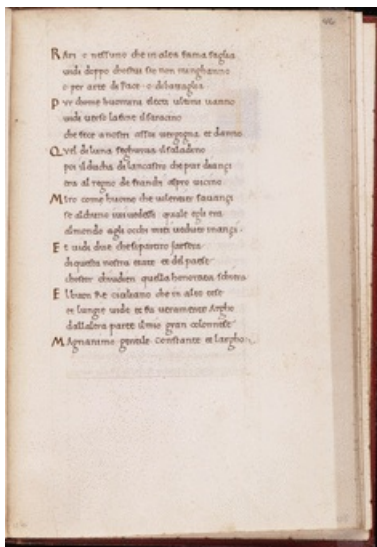 46
Rari o nessuno che in alta fama saglia
vidi doppo chostui sio non minghanno
o per arte di pace o di battaglia
Pur chome huomini electi ultimi vanno
vidi verso la fine il saracino
che fece a nostri assai vergogna et danno
Quel di luria seghuiva il saladino
poi il ducha di lancastro che pur dianzi
era al regno de franchi aspro vicino
Miro come huomo che volentier savanzi
se alchuno vi vedessi quale egli era
almondo agli occhi miei veduto inanzi
Et vidi due che si partiro iersera
di questa nostra etate et del paese
chostor chiudien quella honorata schiera
El buon Re ciciliano che in alto intese
et lunge vide et fu veramente Argho
dallaltra parte il mio gran colonnese
Magnanimo gentile constante et largho